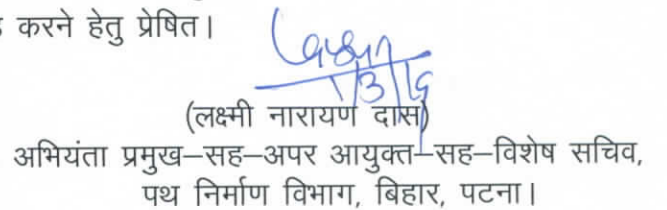 करने हेतु प्रेषित।
1/3/16
(लक्ष्मी नारायण दास)
अभियंता प्रमुख–सह–अपर आयुक्त–सह–विशेष सचिव,
पथ निर्माण विभाग, बिहार, पटना।